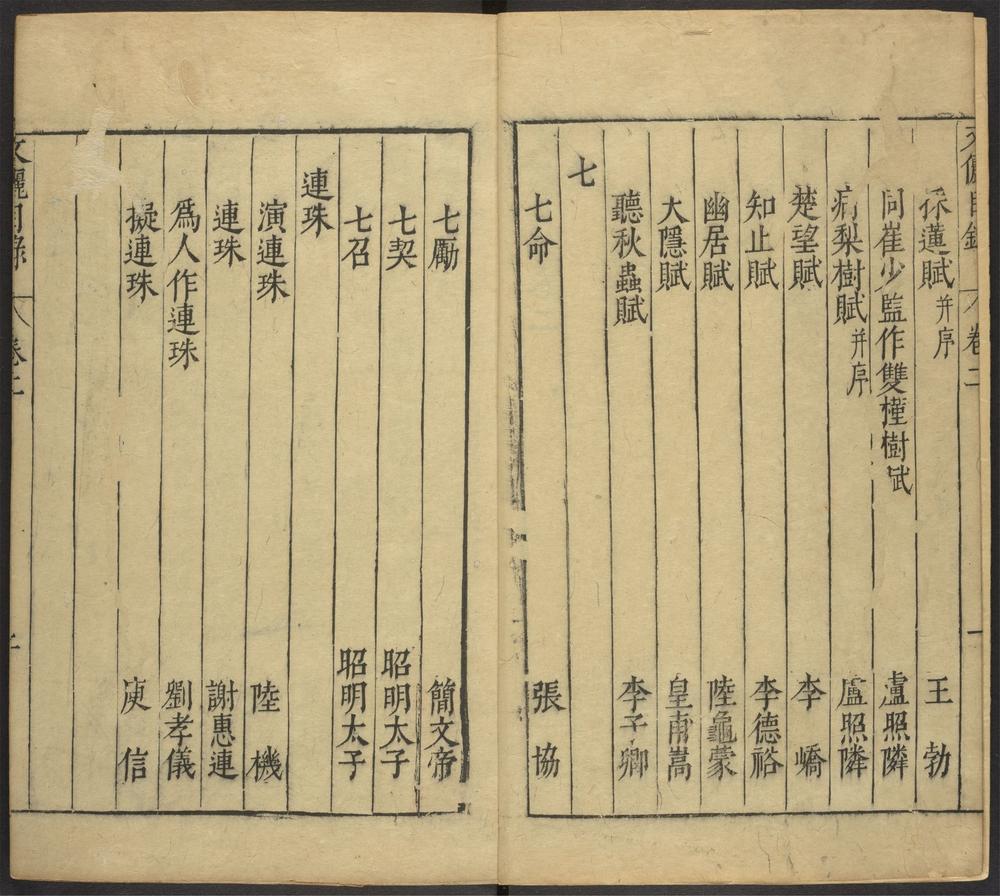 文儷目錄 卷二 一
採蓮賦并序 王勃
同崔少監作雙槿樹賦 盧照隣
病梨樹賦并序 盧照隣
楚望賦 李嶠
知止賦 李德裕
幽居賦 陸龜蒙
大隱賦 皇甫嵩
聽秋蟲賦 李子卿
七
七命 張協
七勵 簡文帝
七契 昭明太子
七召 昭明太子
連珠
演連珠 陸機
連珠 謝惠連
爲人作連珠 劉孝儀
擬連珠 庾信
文儷目錄 卷二